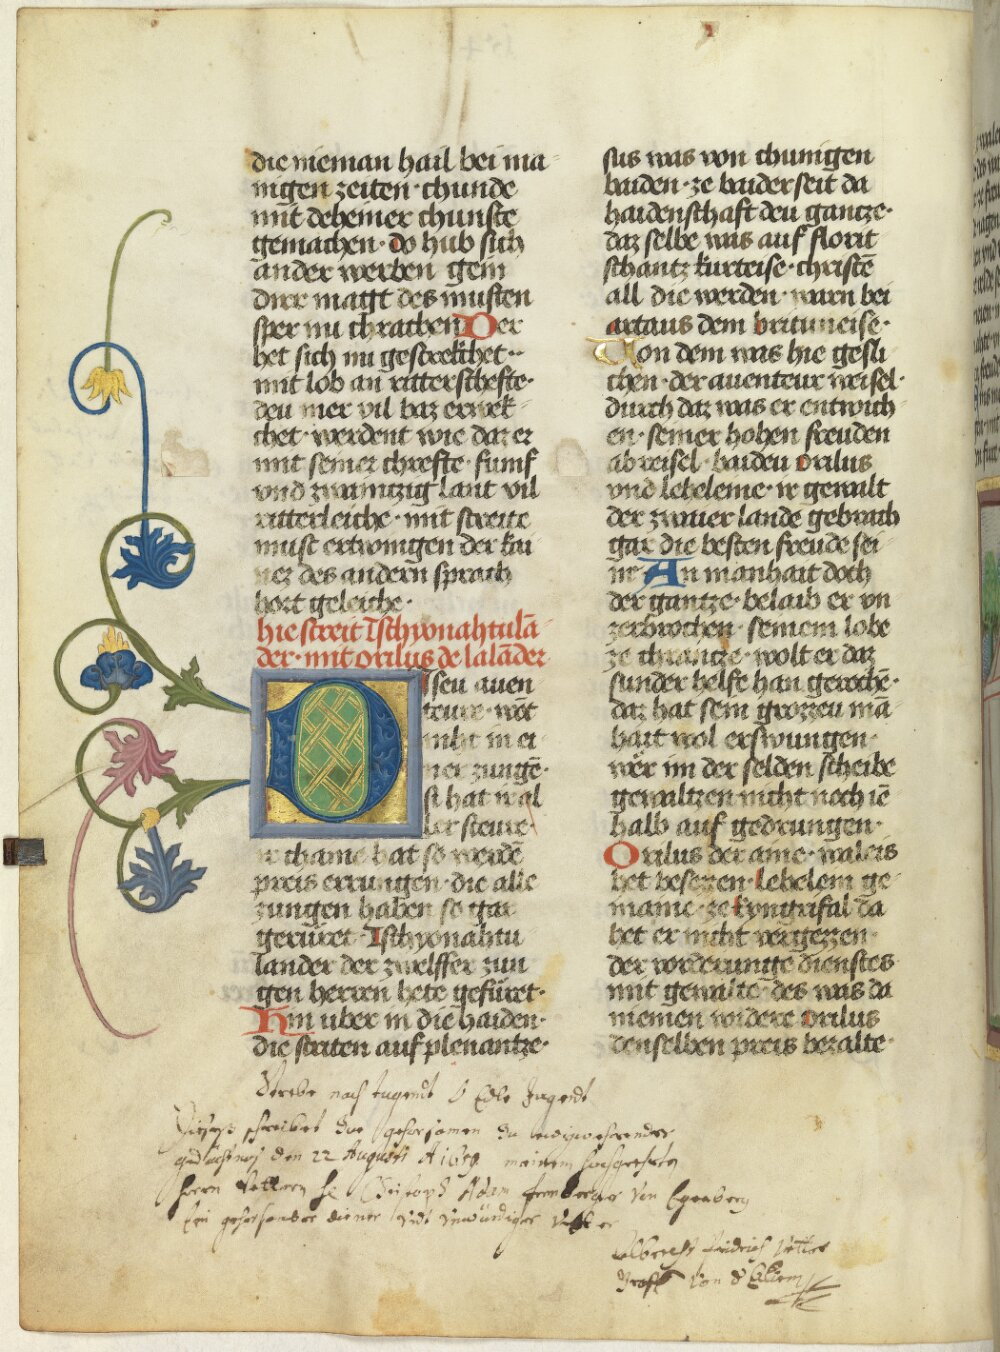 die nieman hail bei ma
nigen zeiten · chunde
mit deheiner chunste
gemachen · do hub sich
ander werben gein
dirr magt des musten
sper nu chrachen Der
het sich nu gestrekchet ·
mit lob an ritterschefte ·
deu mer vil baz erwek
chet · werdent wie daz er
mit seiner chrefte · funf
vnd zwaintzig lant vil
ritterleiche · mit streite
must ertwingen der kai
ner des andern sprach
hort geleiche ·
hie streit Tschyonahtulā
der · mit orilus de lalāder
Diseu auen
teure · wōt
niht in ei
ner zunge ·
si hat wal
der steure ·
ir chaine hat so werdē
preis errungen · die alle
zungen haben so gar
gerüret · Tschyonahtu
lander der zwelffer zun
gen herren hete gefüret ·
Hin uber in die haiden ·
die striten auf plenantze ·
sus was von chunigen
baiden · ze baider seit da
haidenschaft deu gantze ·
daz selbe was auf florit
schantz kurteise · christē
all die werden · warn bei
artaus dem brituneise ·
Von dem was hie gesli
chen · der auenteur weisel ·
durch daz was er entwich
en · seiner hohen freuden
ab reisel · baideu orilus
vnd lebeleine · ir gewalt
der zwaier lande gebrach
gar die besten freude sei
ne An manhait doch
der gantze · belaib er vn
zerbrochen · seinem lobe
ze chrantze · wolt er daz
sunder helfe han geroche ·
daz hat sein grozzeu ma
hait wol erswungen ·
wer im der selden scheibe
gewaltzen nicht noch iē
halb auf gedrungen ·
Orilus der aine · waleis
het besezzen · lebelein ge
maine · ze kyngrifal da
het er nicht vergezzen ·
der vorderunge dienstes
mit gewalte · des was da
niemen widere orilus
denselben preis bezalte ·
Strebe nach tugendt O Edle Jugendt
schreibet
den 22 Augusti A
herrn Vettern Adam von Egenberg
Ein gehorsamber diener vndt
Albrecht Fridrich Vetter
Graff von d